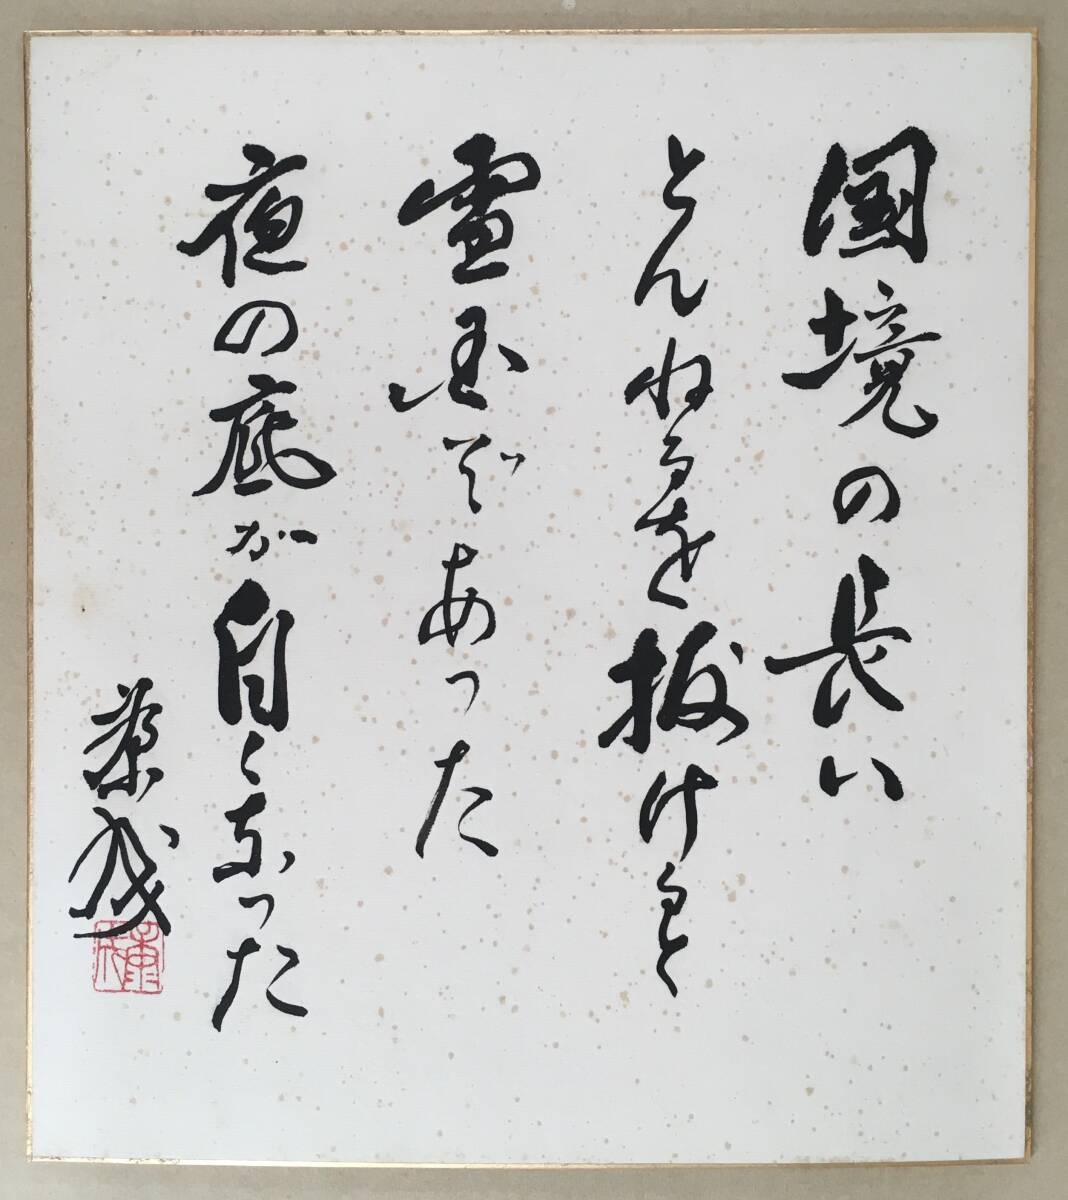 国境の長い
とんねるを抜けると
雪国であった
夜の底が白くなった
康成
康成